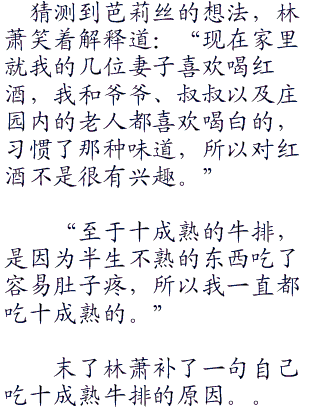 猜测到芭莉丝的想法，林
萧笑着解释道：“现在家里
就我的几位妻子喜欢喝红
酒，我和爷爷、叔叔以及庄
园内的老人都喜欢喝白的，
习惯了那种味道，所以对红
酒不是很有兴趣。”
“至于十成熟的牛排，
是因为半生不熟的东西吃了
容易肚子疼，所以我一直都
吃十成熟的。”
末了林萧补了一句自己
吃十成熟牛排的原因。。